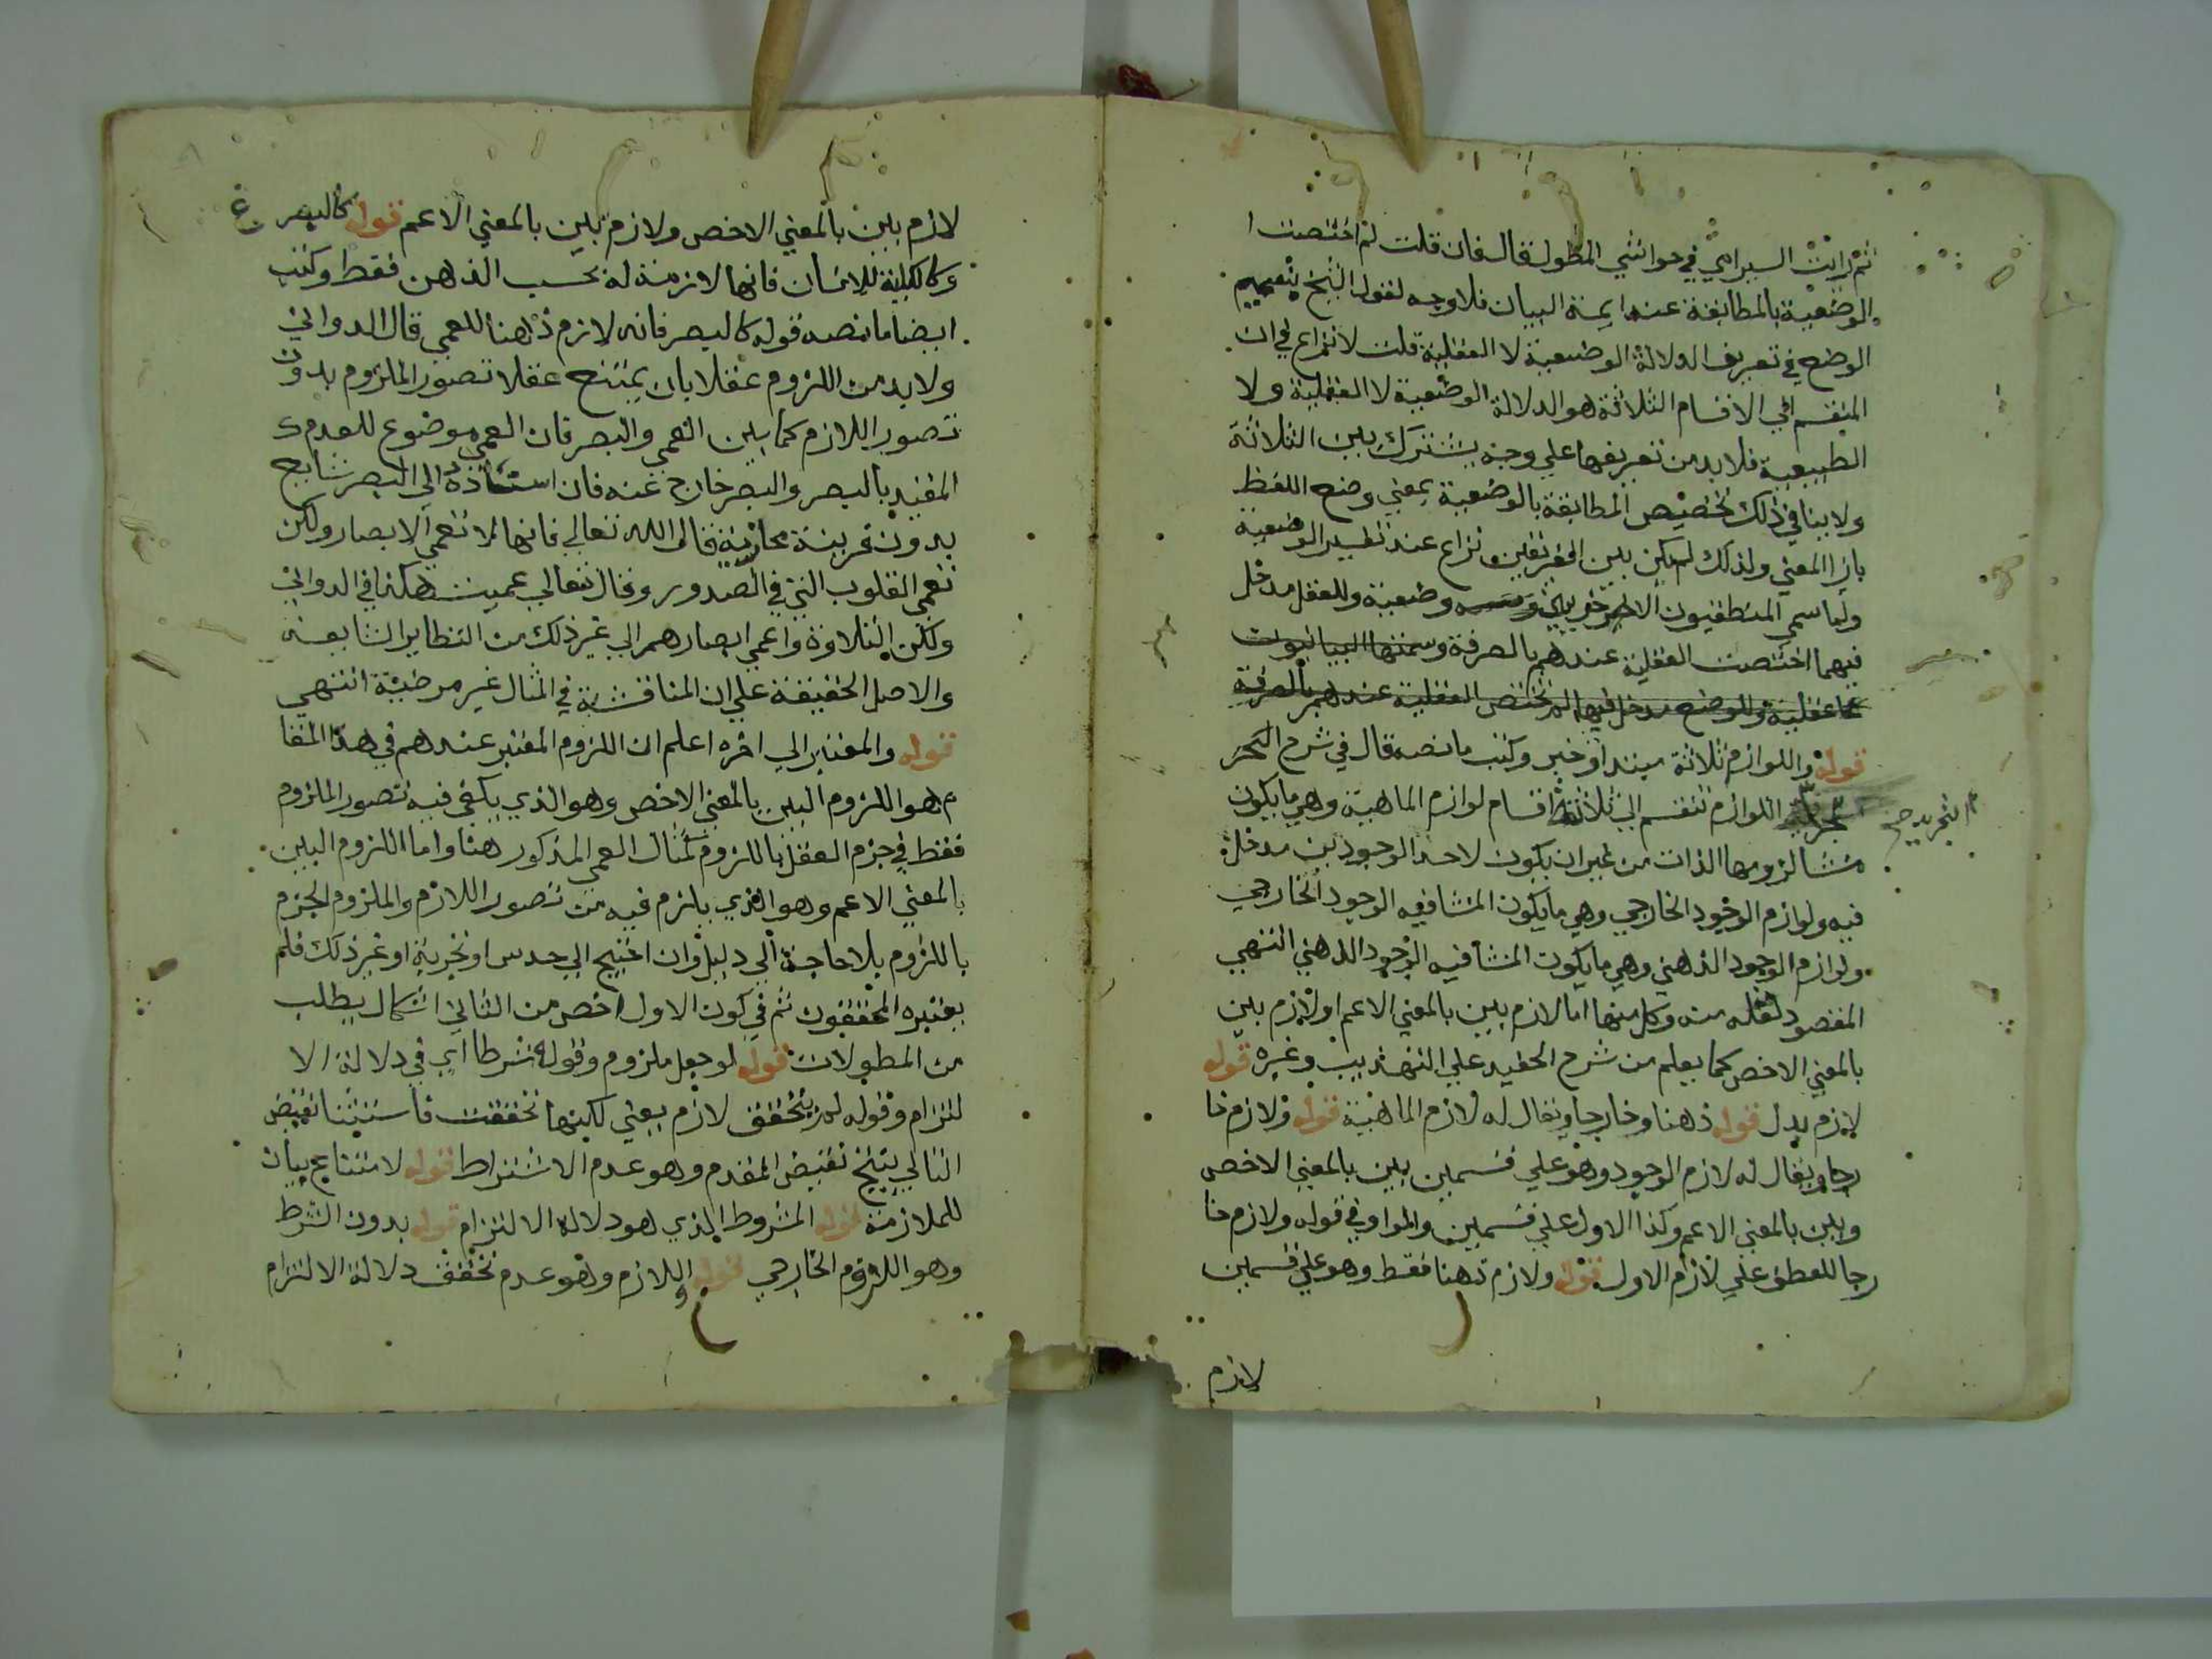 ثم رايت السيرامي في حواشي المطول قال فان قلت لم اختصت ا
لوضعية بالمطابقة عند ايمة البيان فلا وجه لقول الشيخ بتعميم
الوضع في تعريف الدلالة الوضعية لا العقلية قلت لا نزاع في ان
المنقسم الي الاقسام الثلاثة هو الدلالة الوضعية لا العقلية ولا
الطبيعية فلا بد من تعريفها علي وجه يشترك بين الثلاثة
ولا ينافي ذلك تخصيص المطابقة بالوضعية بمعني وضع اللفظ
بازا المعني ولذلك لم يكن بين الفريقين نزاع عند تفسير الوضعية
ولما سمي المنطقيون الاخريين وضعية وللعقل مدخل
فيهما اختصت العقلية عندهم بالصرفة وسمتها البيانيون
عقلية وللوضع مدخل فيها لم تختص العقلية عندهم بالصرفة
قوله واللوازم ثلاثة مبتدا وخبر وكتب ما نصه قال في شرح
اللوازم تنقسم الي ثلاثة اقسام لوازم الماهية وهي ما يكون
التجريد صح
منشا لزومها الذات من غير ان يكون لاحد الوجودين مدخل
فيه ولوازم الوجود الخارجي وهي ما يكون المنشا فيه الوجود الخارجي
ولوازم الوجود الذهني وهي ما يكون المنشا فيه الوجود الذهني انتهي
المقصود نقله منه وكل منها اما لازم بين بالمعني الاعم او لازم بين
بالمعني الاخص كما يعلم من شرح الحفيد علي التهذيب وغيره قوله
لازم بدل قوله ذهنا وخارجا ويقال له لازم الماهية قوله ولازم خا
رجا ويقال له لازم الوجود وهو علي قسمين بين بالمعني الاخص
وبين بالمعني الاعم وكذا الاول علي قسمين والواو في قوله ولازم خا
رجا للعطف علي لازم الاول قوله ولازم ذهنا فقط وهو علي قسمين
لازم
لازم بين بالمعني الاخص ولازم بين بالمعني الاعم قوله كالبصر ع
وكالكلية للانسان فانها لازمة له بحسب الذهن فقط وكتب
ايضا ما نصه قوله كالبصر فانه لازم ذهنا للعمي قال الدواني
ولا بد من اللزوم عقلا بان يمتنع عقلا تصور الملزوم بدون
تصور اللازم كما بين العمي والبصر فان العمي موضوع للعدم
المقيد بالبصر والبصر خارج عنه فان اسناده الي البصر شايع
بدون قرينة مجازية قال الله تعالي فانها لا تعمي الابصار ولكن
تعمي القلوب التي في الصدور وقال تعالي عميت هكذا في الدواني
ولكن التلاوة واعمي ابصارهم الي غير ذلك من النظاير الشايعة
والاصل الحقيقة علي ان المناقشة في المثال غير مرضية انتهي
قوله والمعتبر الي اخره اعلم ان اللزوم المعتبر عندهم في هذا المقا
م هو اللزوم البين بالمعني الاخص وهو الذي يكفي فيه تصور الملزوم
فقط في جزم العقل باللزوم كمثال العمي المذكور هنا واما اللزوم البين
بالمعني الاعم وهو الذي يلزم فيه من تصور اللازم والملزوم الجزم
باللزوم بلا حاجة الي دليل وان احتيج الي حدس او تجربة او غير ذلك فلم
يعتبره المحققون ثم في كون الاول اخص من الثاني اشكال يطلب
من المطولات قوله لو جعل ملزوم وقوله شرطا اي في دلالة الا
لتزام وقوله لم يتحقق لازم يعني لكنها تحققت فاستثنا نقيض
التالي ينتج نقيض المقدم وهو عدم الاشتراط قوله لامتناع بيان
للملازمة قوله المشروط الذي هو دلالة الالتزام قوله بدون الشرط
وهو اللزوم الخارجي قوله واللازم وهو عدم تحقق دلالة الالتزام